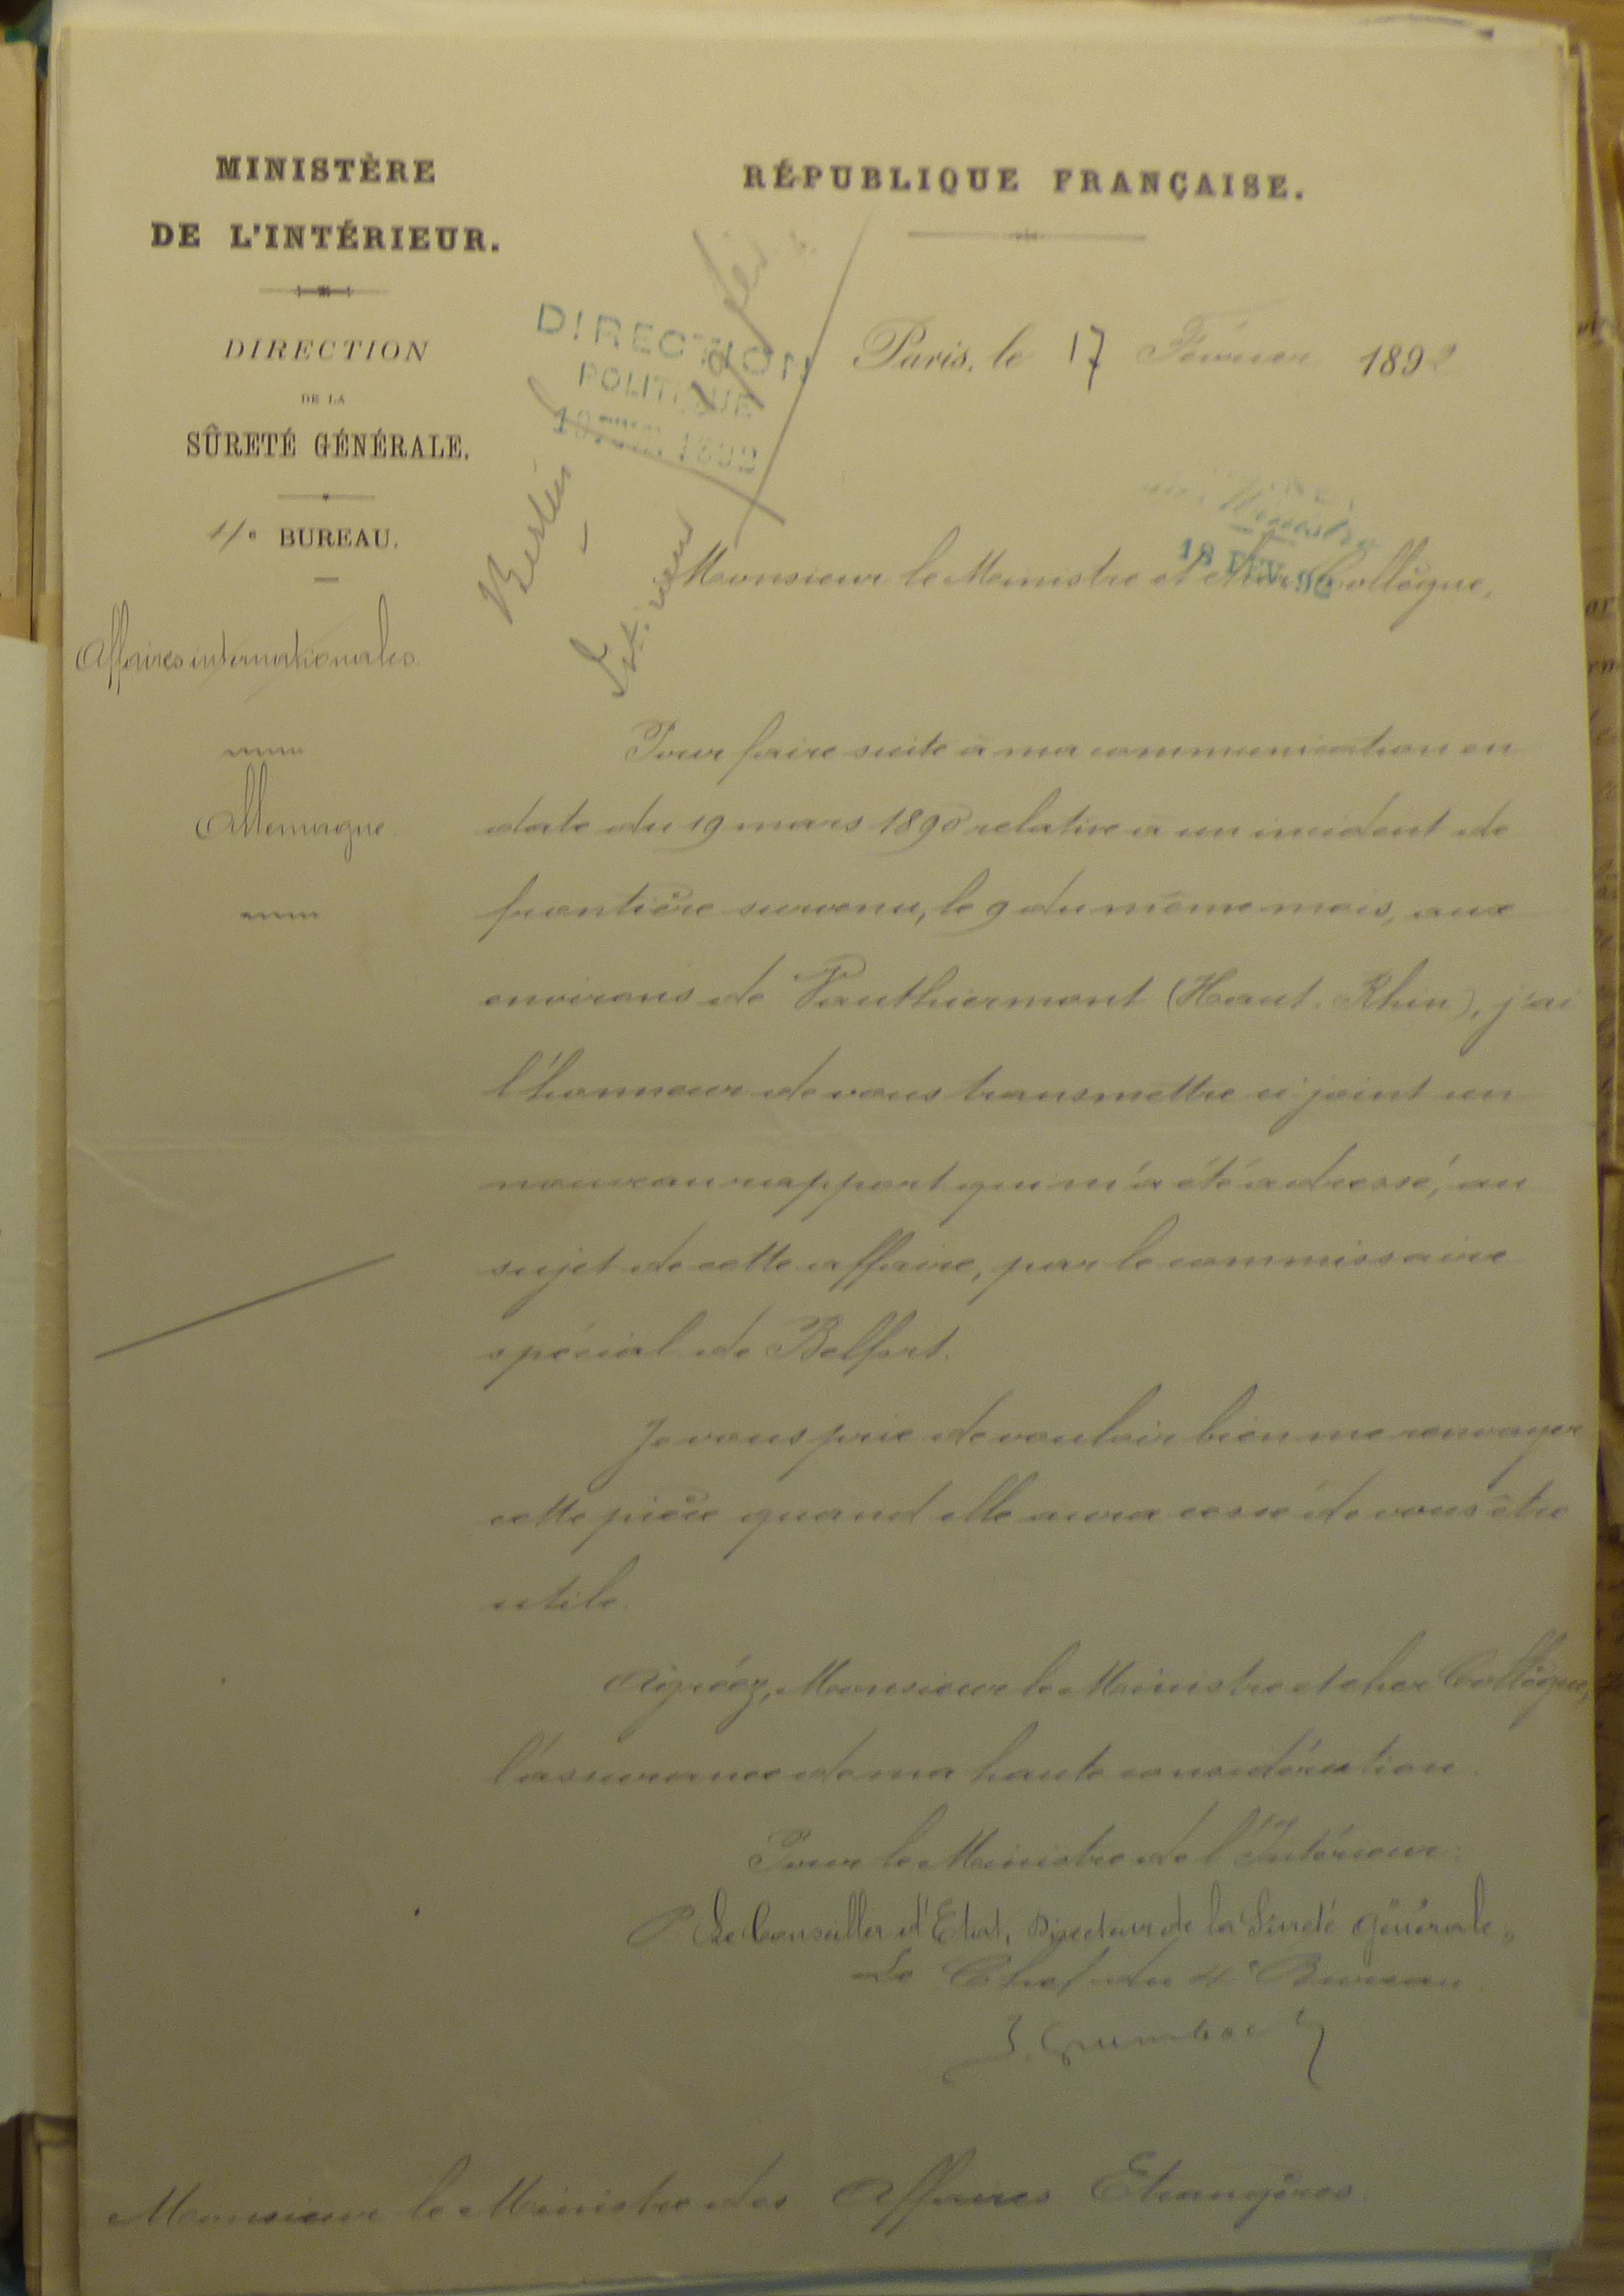 MINISTÈRE
DE L'INTÉRIEUR.
DIRECTION
DE LA
SÛRETÉ GÉNÉRALE.
4e BUREAU.
Affaires internationales.
Allemagne
RÉPUBLIQUE FRANÇAISE.
DIRECTION
POLITIQUE
1892
Berlin
Intérieur
Paris, le 17 Février 1892
18
Monsieur le Ministre et cher Collègue,
Pour faire suite à ma communication en
date du 19 mars 1890 relative à un incident de
frontière survenu, le 9 du même mois, aux
environs de Vauthiermont (Haut-Rhin), j'ai
l'honneur de vous transmettre ci-joint un
nouveau rapport qui m'a été adressé, au
sujet de cette affaire, par le commissaire
spécial de Belfort.
Je vous prie de vouloir bien me renvoyer
cette pièce quand elle aura cessé de vous être
utile.
Agréez, Monsieur le Ministre et cher Collègue,
l'assurance de ma haute considération.
Pour le Ministre de l'Intérieur:
P. Le Conseiller d'Etat, Directeur de la Sûreté Générale,
Le Chef du 4e Bureau
Monsieur le Ministre des Affaires Etrangères.